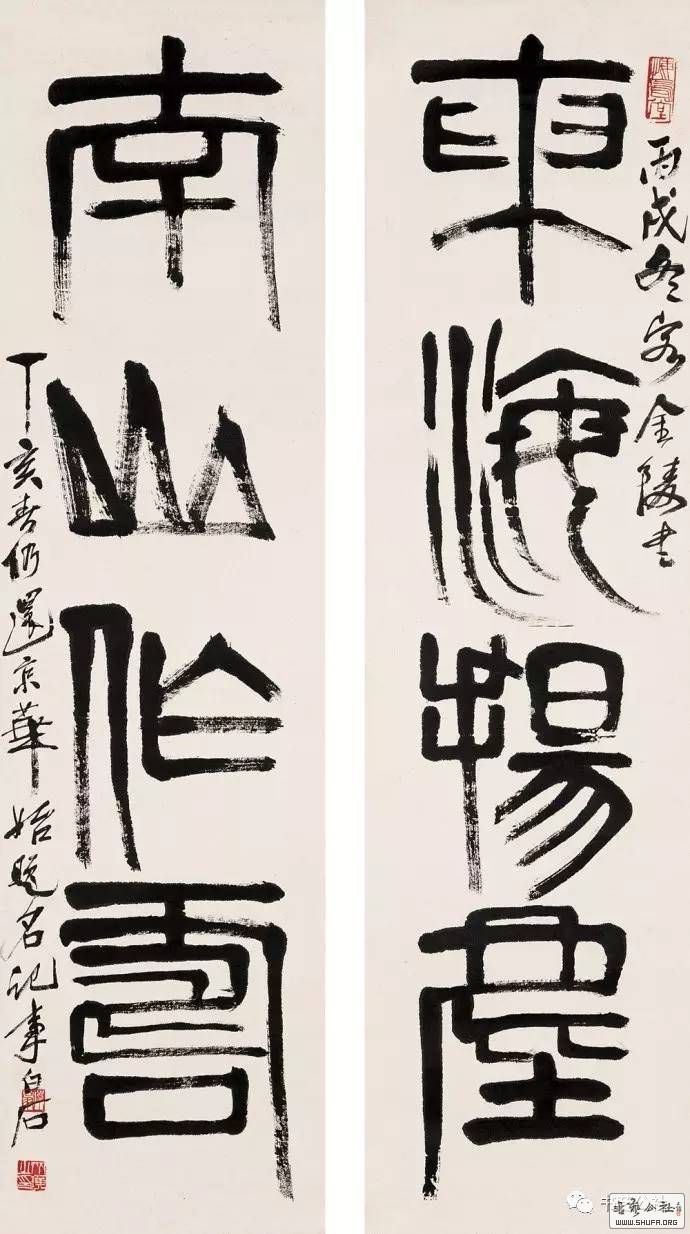 丙戌冬客金陵書
東海揚塵
南山作壽
丁亥春仍還京華始題名記事白石
書藝公社
WWW.SHUFA.ORG